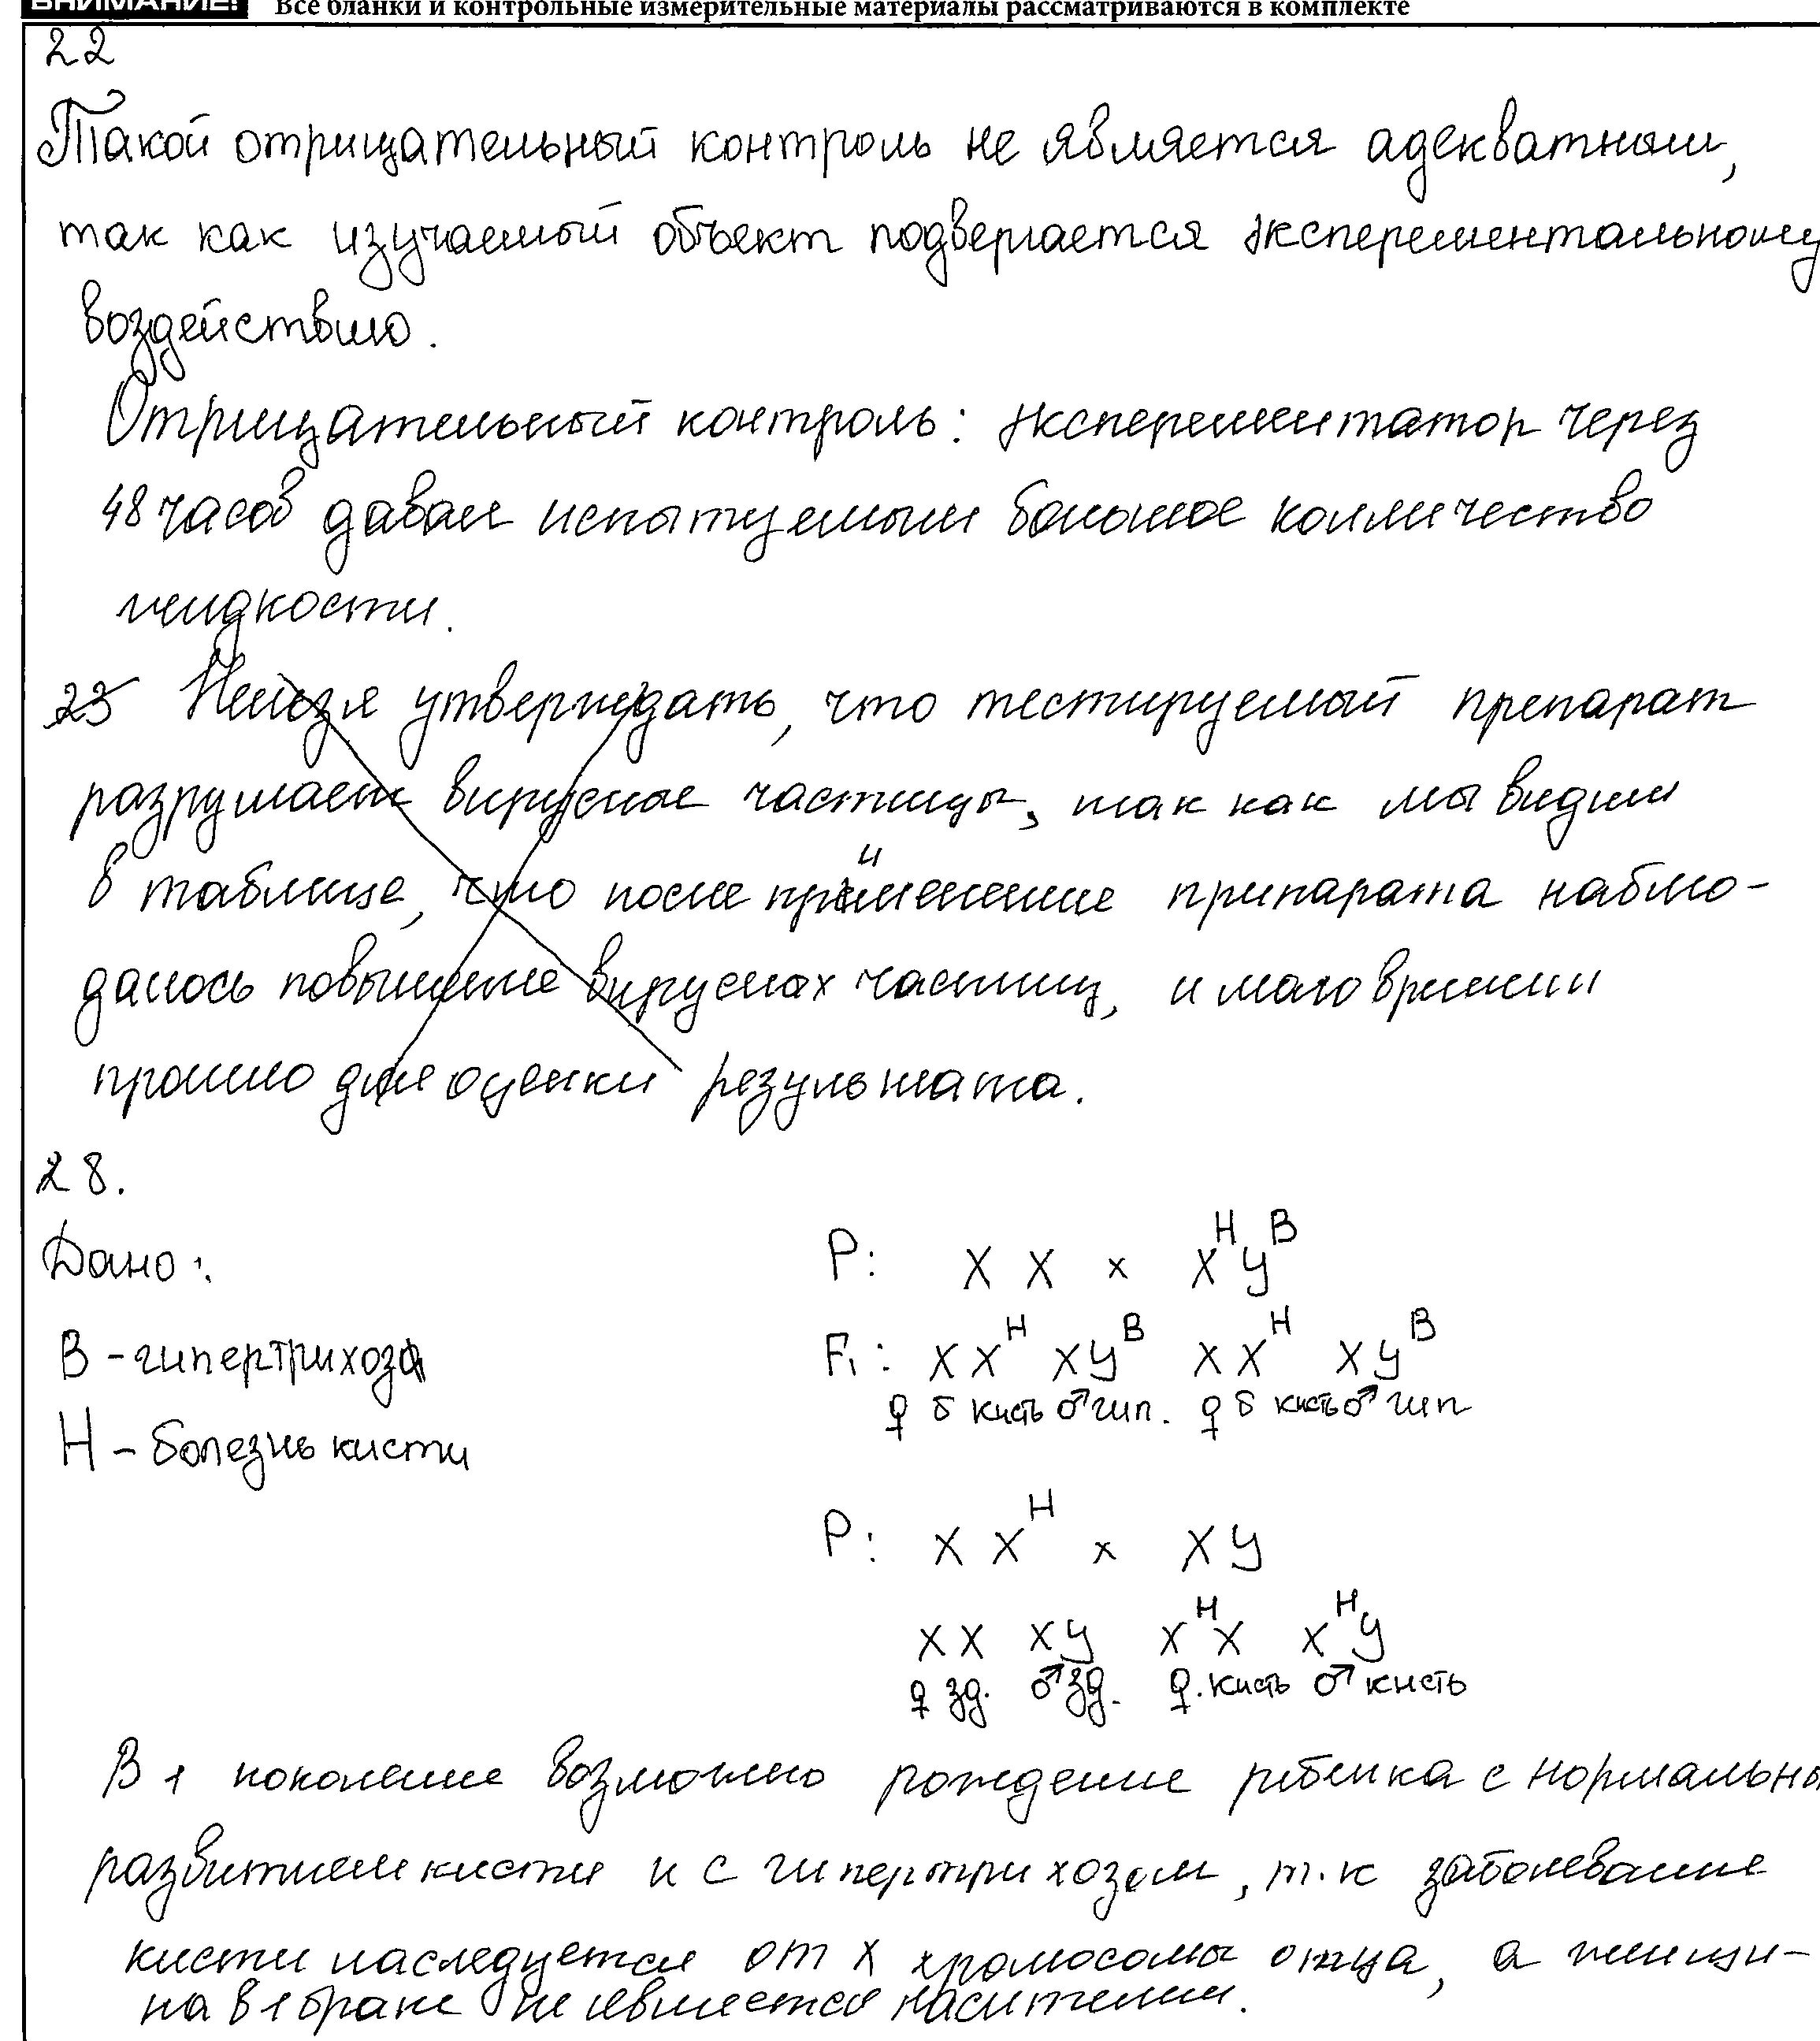 ВНИМАНИЕ! Все бланки и контрольные измерительные материалы рассматриваются в комплекте
22
Такой отрицательный контроль не является адекватным,
так как изучаемый объект подвергается эксперементальному
воздействию.
Отрицательный контроль: эксперементатор через
48 часов давал испытуемым большое колличество
жидкости.
23 Нельзя утверждать, что тестируемый препарат
разрушает вирусные частицы, так как мы видим
в таблице, что после применение припарата наблю-
далось повышение вирусных частиц, и мало времени
прошло для оценки результата.
28.
Дано:
P: X X × X^H У^B
B - гипертрихоза
F₁: X X^H X У^B X X^H X У^B
♀ б кисть ♂ гип. ♀ б кисть ♂ гип
H - болезнь кисти
P: X X^H × X У
X X X У X^H X X^H У
♀ зд. ♂ зд. ♀. кисть ♂ кисть
В 1 поколение возможно рождение ребенка с нормальны
развитием кисти и с гипертрихозом, т.к заболевание
кисти наследуется от X хромосомы отца, а женщи-
на в 1 браке не является наситилем.